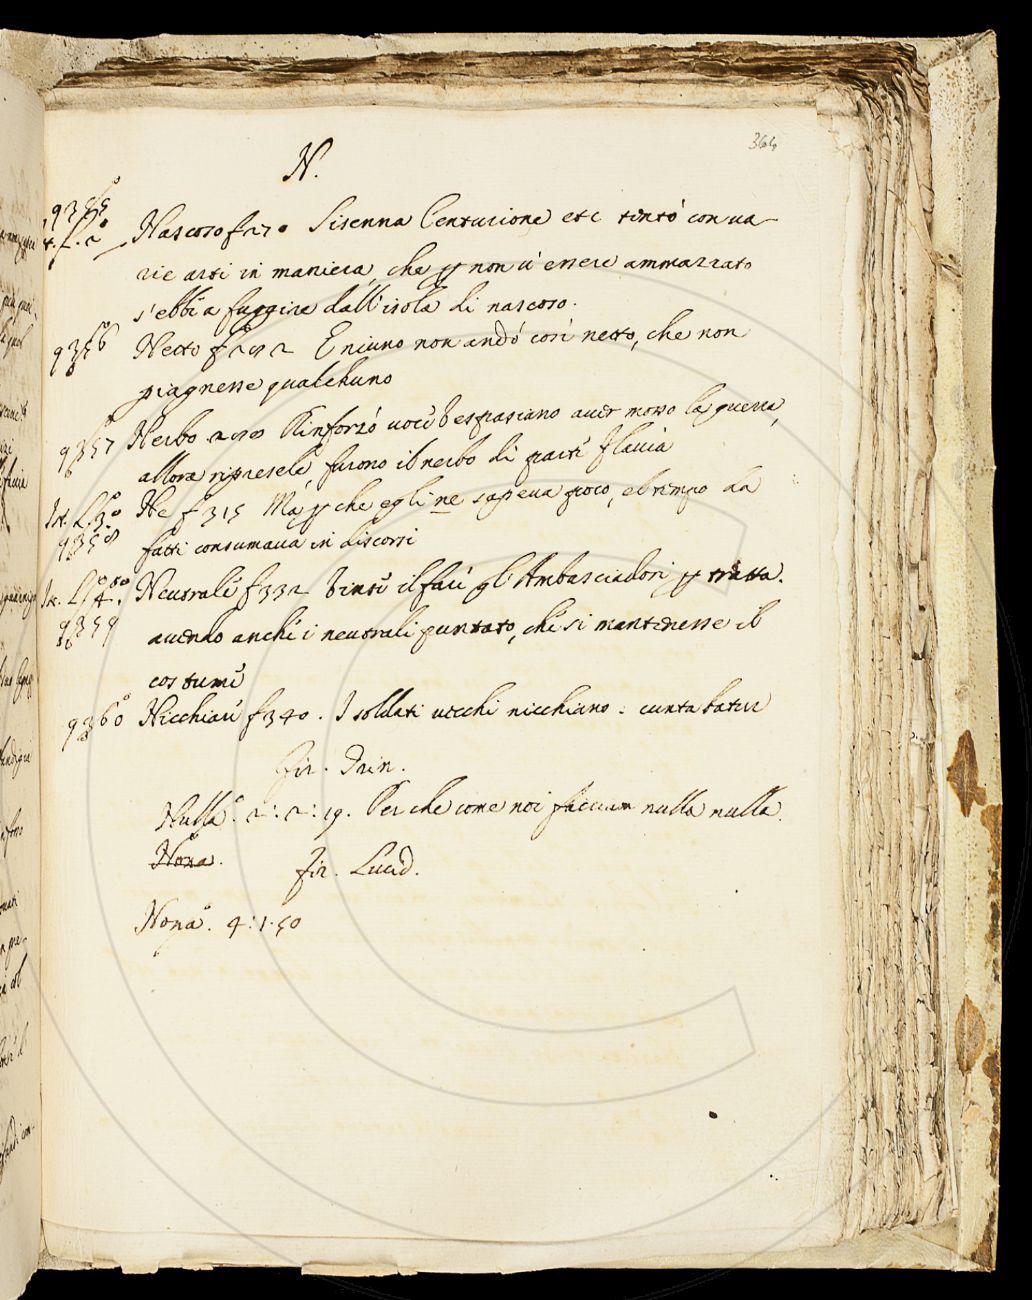 366
N.
9355
st. l. 2°
Nascoso f 270 Sisenna Centurione etc tentò con va-
rie arti in maniera, che p non v' essere ammazzato
s'ebbe a fuggire dall'isola di nascoso.
9356
Netto f 292 E niuno non andò così netto, che non
piagnesse qualchuno
9357
Nerbo 299 Rinforzò voce Vespasiano aver mosso la guerra,
allora ripresele, furono il nerbo di parte flavia
St. L. 3°
9358
Ne f 315 Ma p che egli ne sapeva poco, e l tempo da
fatti consumava in discorsi
St. L. 4°
9359
Neutrale f 332 Vinse il fare gl'Ambasciadori p tratta.
avendo anche i neutrali puntato, che si mantenesse il
costume
9360
Nicchiare f 340. I soldati vecchi nicchiano: cuntabatur
fir. Trin.
Nulla. 2:2:19. Perche come noi facciam nulla nulla.
Nona.
fir. Lucid.
Nona. 4:1.50